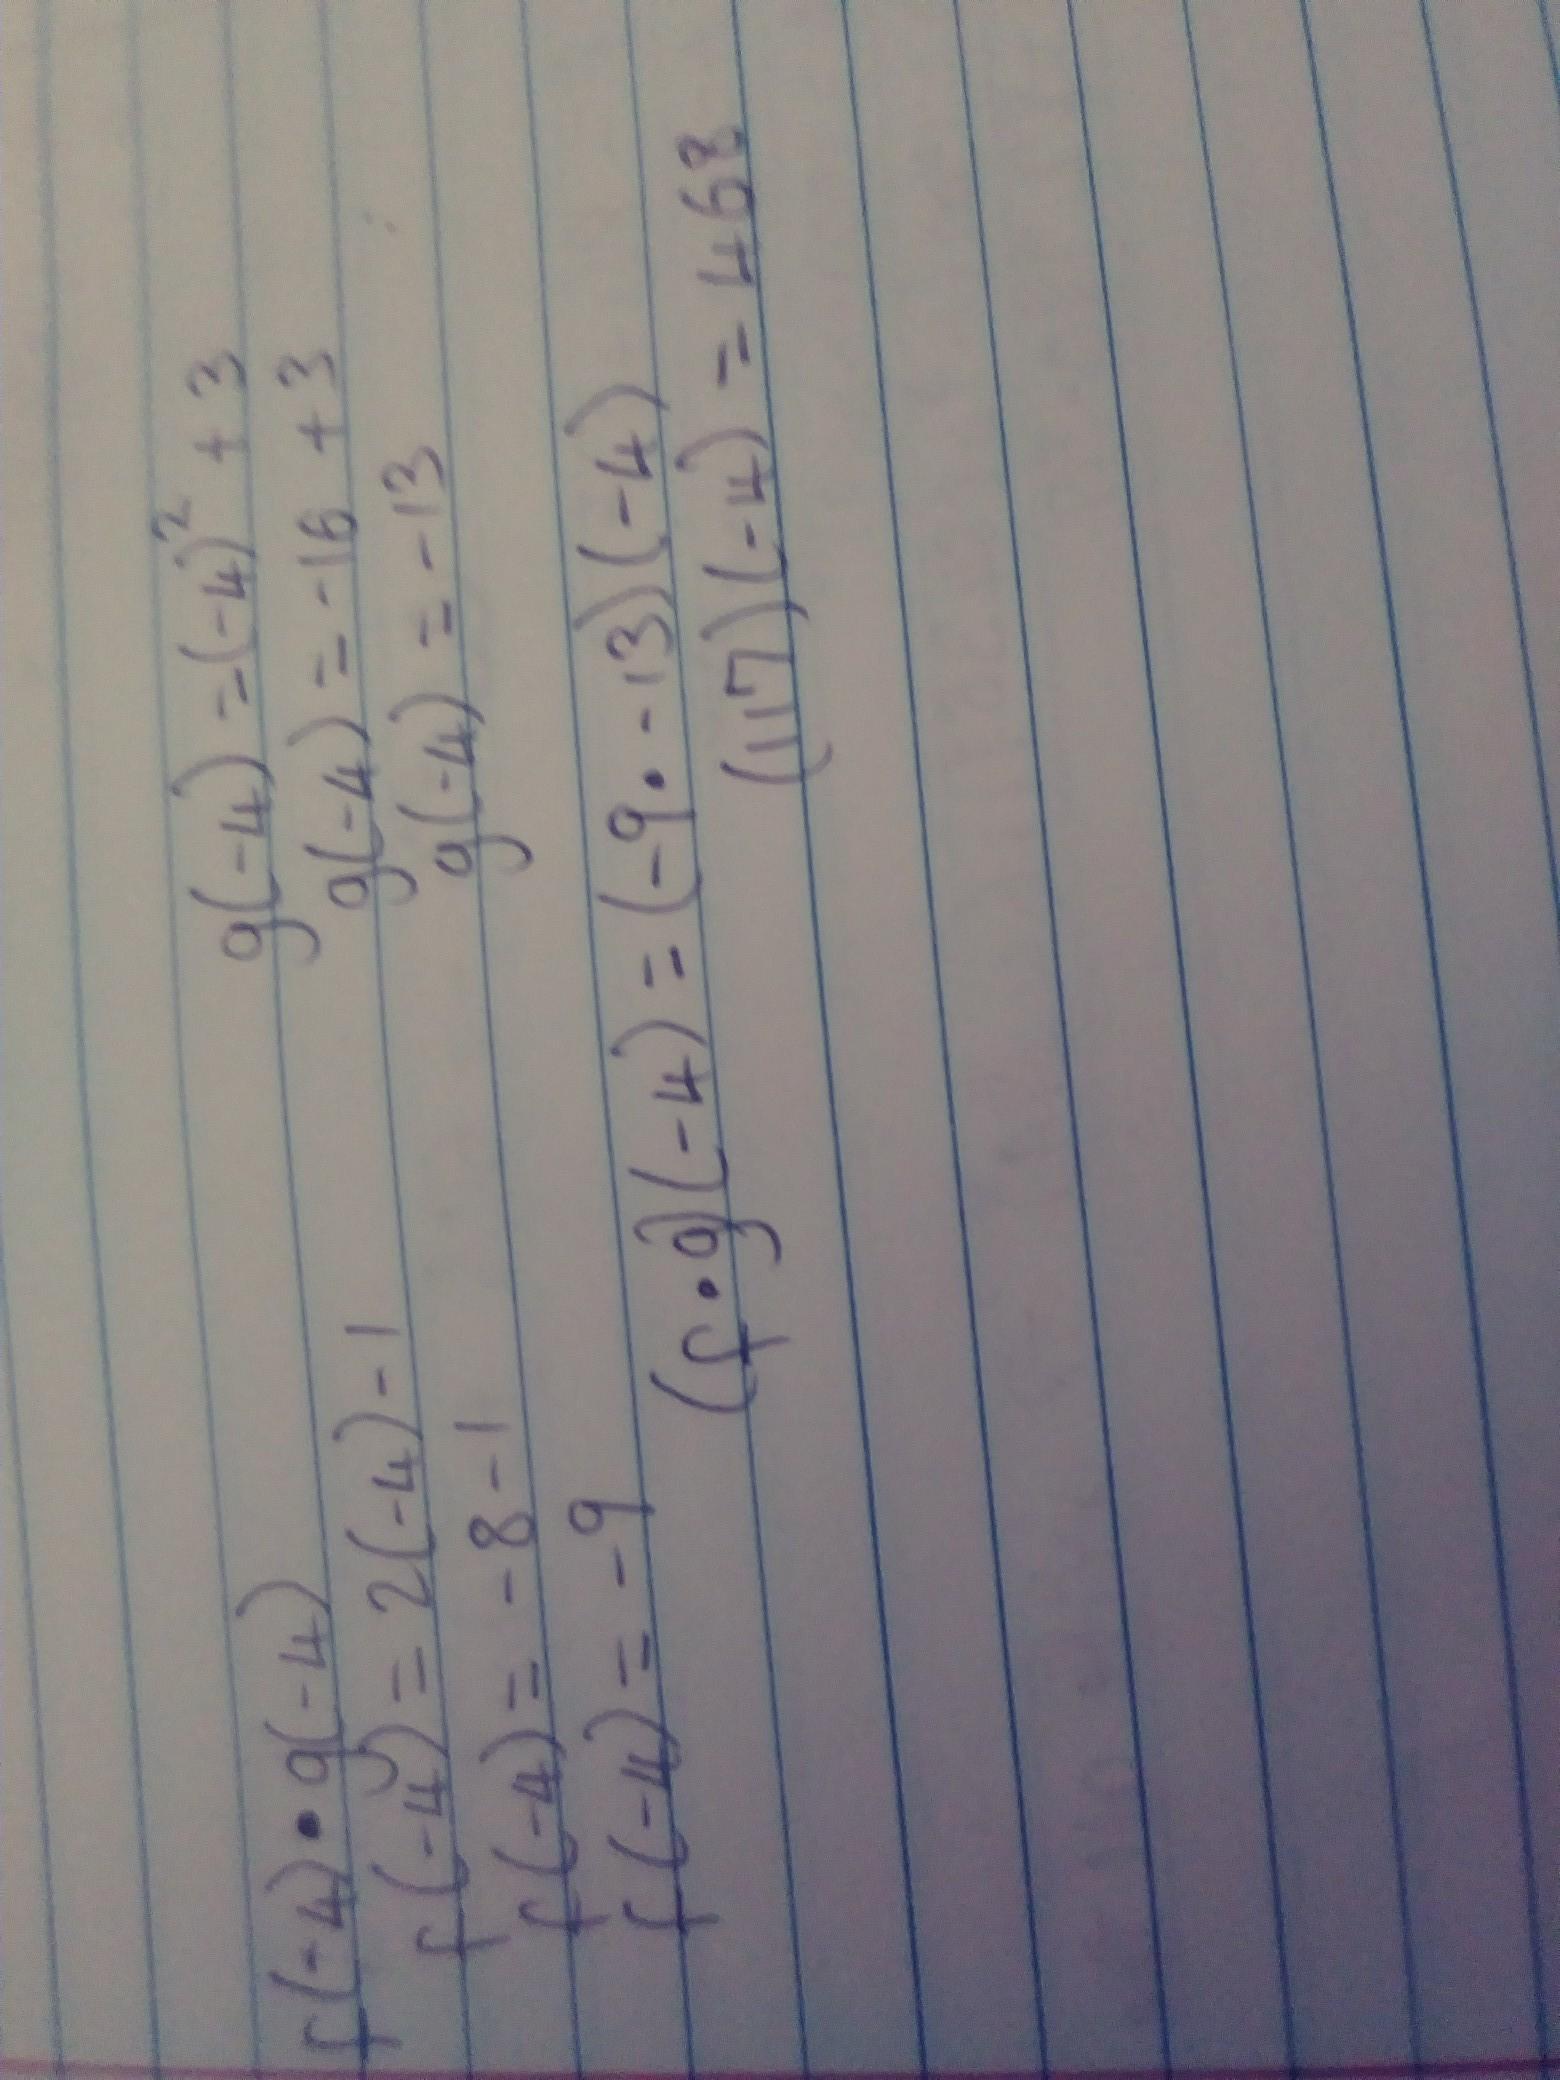 g(-4) = (-4)² + 3
f(-4) • g(-4)
g(-4) = -16 + 3
f(-4) = 2(-4) - 1
g(-4) = -13
f(-4) = -8 - 1
f(-4) = -9
(f • g)(-4) = (-9 • -13)(-4)
(117)(-4) = 468